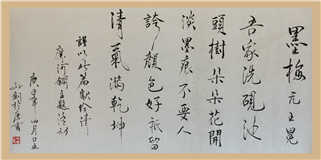 墨梅 元 王冕
吾家洗硯池
頭樹朵朵花開
淡墨痕不要人
誇顏色好祇留
清氣滿乾坤
謹以此篇獻給
年四月